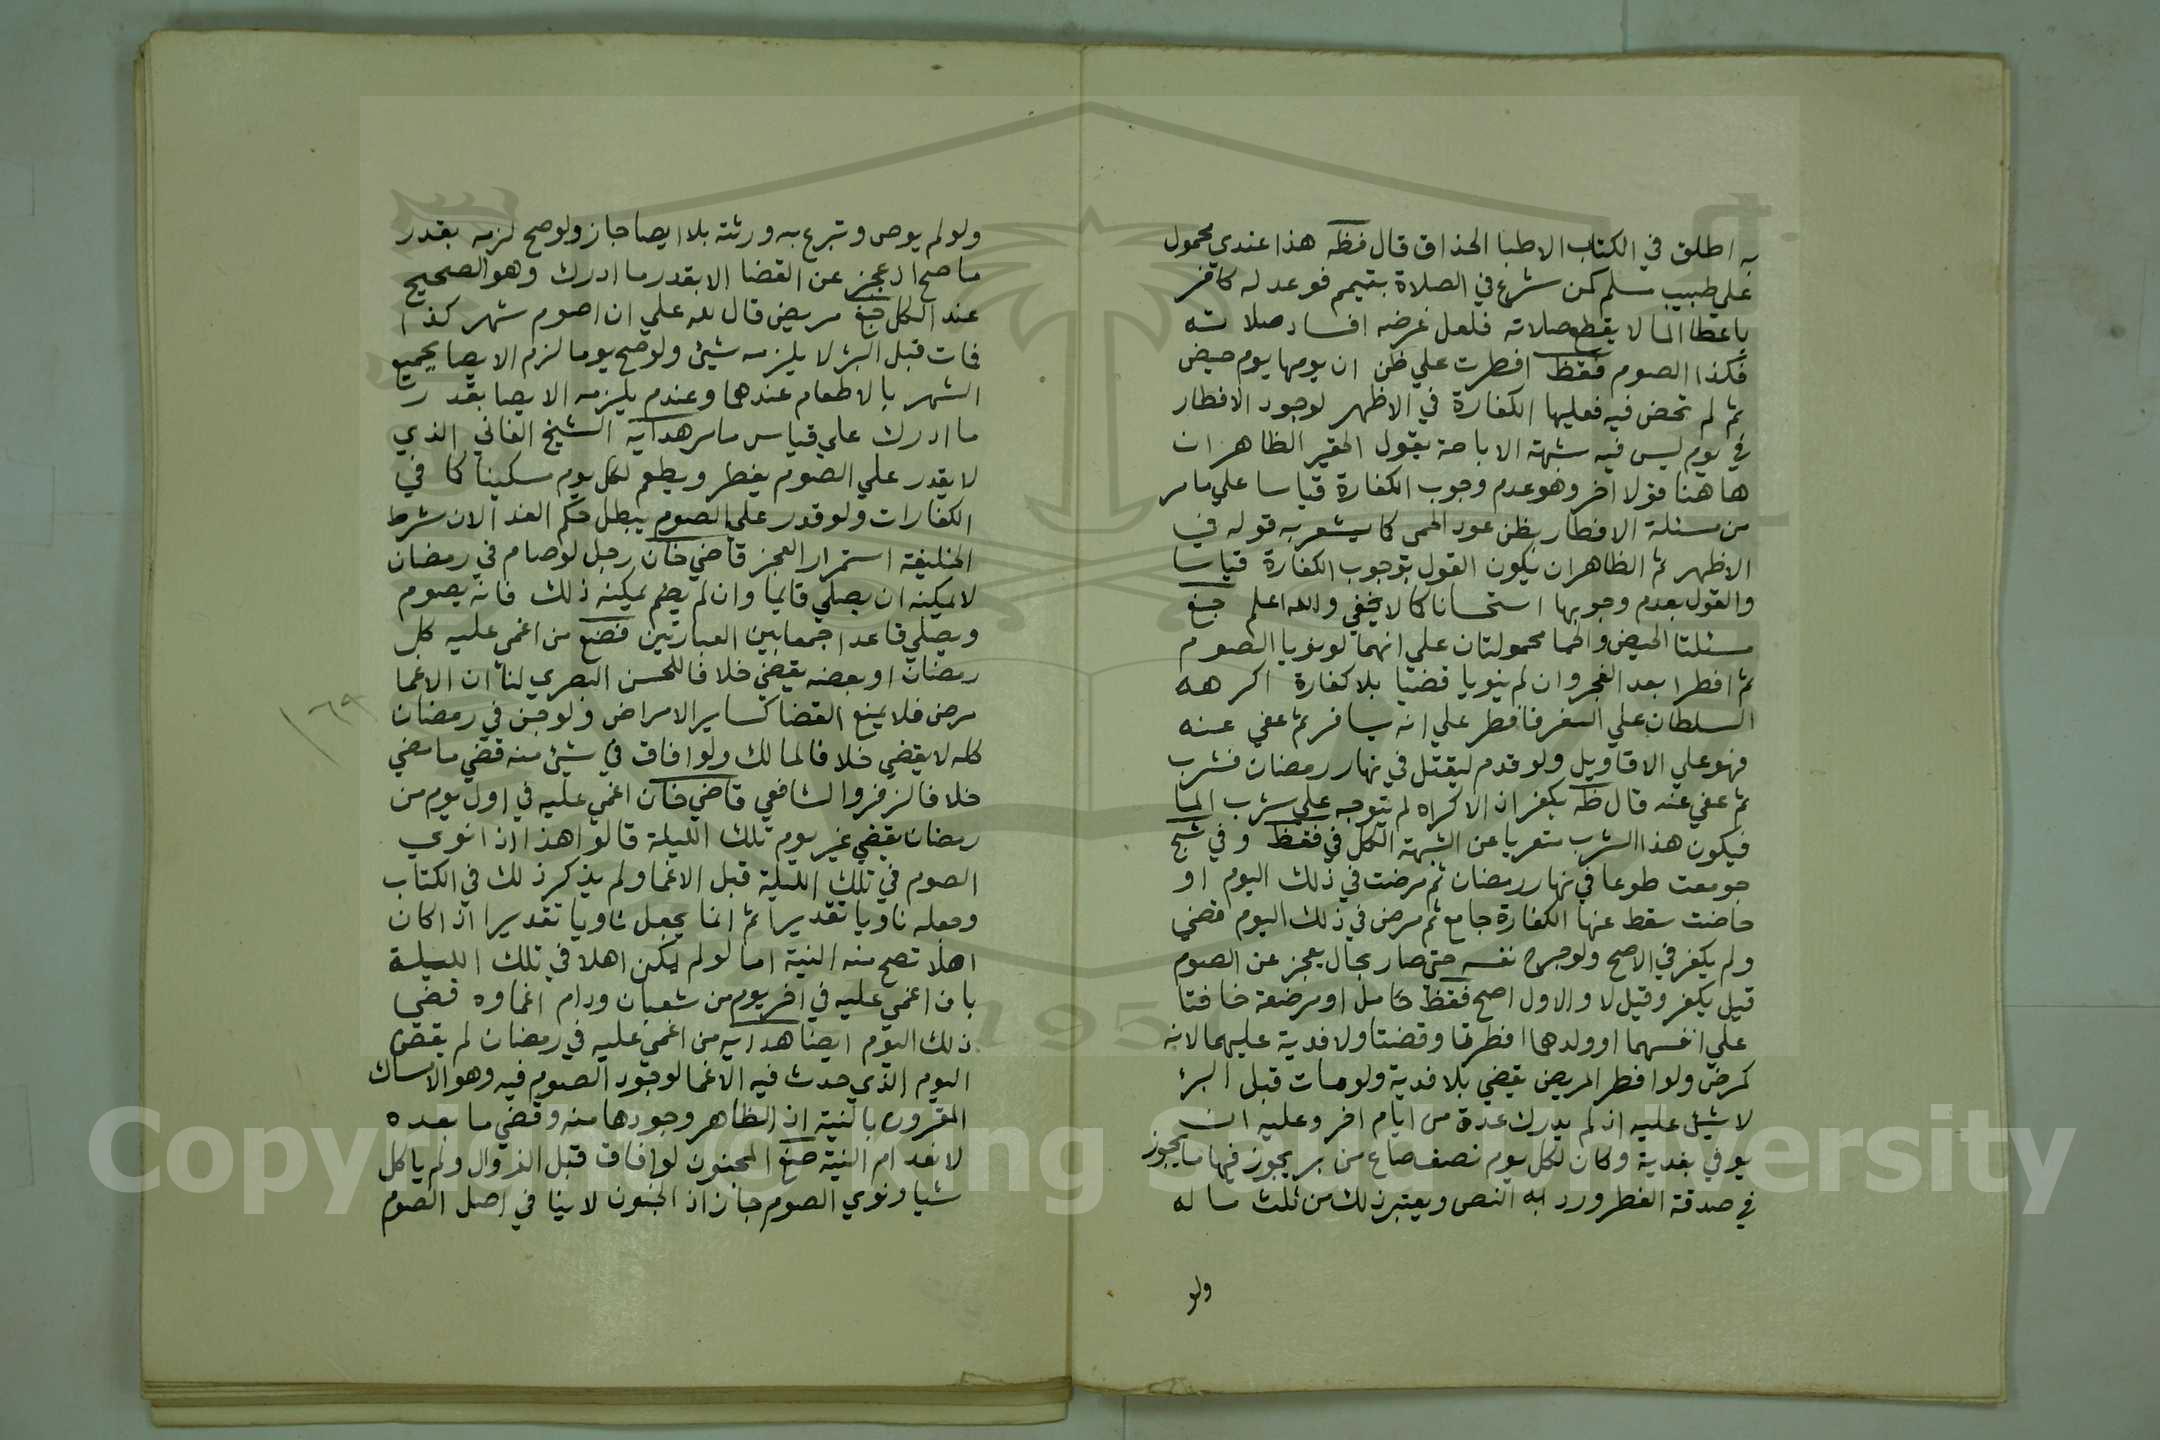 به اطلق في الكتاب الاطبا الحذاق قال فظه هذا عندي محمول
علي طبيب مسلم كمن شرع في الصلاة بتيمم فوعد له كافر
باعطا الما لا يقطع صلاته فلعل غرضه افساد صلاته
فكذا الصوم فقظ افطرت علي ظن ان يومها يوم حيض
ثم لم تحض فيه فعليها الكفارة في الاظهر لوجود الافطار
في يوم ليس فيه شبهة الاباحة يقول الحقير الظاهر ان
هاهنا قولا اخر وهو عدم وجوب الكفارة قياسا علي ما مر
من مسئلة الافطار بظن عود الحمى كما يشعر به قوله في
الاظهر ثم الظاهر ان يكون القول بوجوب الكفارة قياسا
والقول بعدم وجوبها استحسانا كما لا يخفي والله اعلم جغ
مسئلتا الحيض والحما محمولتان علي انهما لو نويا الصوم
ثم افطرا بعد الفجر وان لم ينويا قضيا بلا كفارة اكرهه
السلطان علي السفر فافطر علي انه يسافر ثم عفي عنه
فهو علي الاقاويل ولو قدم ليقتل في نهار رمضان فشرب
ثم عفي عنه قال ظه يكفر اذ الاكراه لم يتوجه علي شرب الما
فيكون هذا الشرب متعريا عن الشبهة الكل في فقظ وفي شح
جومعت طوعا في نهار رمضان ثم مرضت في ذلك اليوم او
حاضت سقط عنها الكفارة جامع ثم مرض في ذلك اليوم قضي
ولم يكفر في الاصح ولو جرح نفسه حتى صار بحال يعجز عن الصوم
قيل يكفر وقيل لا والاول اصح فقظ حامل او مرضعة خافتا
علي انفسهما او ولدهما افطرتا وقضتا ولا فدية عليهما لانه
كمرض ولو افطر المريض يقضي بلا فدية ولو مات قبل البرئ
لا شيئ عليه اذ لم يدرك عدة من ايام اخر وعليه ان
يوفي بفدية وكان لكل يوم نصف صاع من بر يجوز فيها ما يجوز
في صدقة الفطر ورد به النص ويعتبر ذلك من ثلث ماله
ولو
ولو لم يوص وتبرع به ورثته بلا ايصا جاز ولو صح لزمه بقدر
ما صح اذ عجز عن القضا الا بقدر ما ادرك وهو الصحيح
عند الكل جغ مريض قال لله علي ان اصوم شهر كذا
فات قبل البئر لا يلزمه شيئ ولو صح يوما لزم الايصا بجميع
الشهر بالاطعام عندهما وعندم يلزمه الايصا بقدر
ما ادرك علي قياس ما مر هدايه الشيخ الفاني الذي
لا يقدر علي الصوم يفطر ويطعم لكل يوم مسكينا كما في
الكفارات ولو قدر علي الصوم يبطل حكم الفدا لان شرط
الخليفة استمرار العجز قاضي خان رجل لو صام في رمضان
لا يمكنه ان يصلي قائما وان لم يصم يمكنه ذلك فانه يصوم
ويصلي قاعدا جمعا بين العبارتين فضع من اغمي عليه كل
رمضان او بعضه يقضي خلافا للحسن البصري لنا ان الاغما
مرض فلا يمنع القضا كساير الامراض ولو جن في رمضان
كله لا يقضي خلافا لمالك ولو افاق في شيئ منه قضي ما مضي
خلافا لزفر والشافعي قاضي خان اغمي عليه في اول يوم من
رمضان يقضي غير يوم تلك الليلة قالوا هذا اذا نوي
الصوم في تلك الليلة قبل الاغما ولم يذكر ذلك في الكتاب
وجعله ناويا تقديرا ثم انما يجعل ناويا تقديرا اذا كان
اهلا تصح منه النية اما لو لم يكن اهلا في تلك الليلة
بان اغمي عليه في اخر يوم من شعبان ودام اغماوه قضي
ذلك اليوم ايضا هدايه من اغمي عليه في رمضان لم يقض
اليوم الذي حدث فيه الاغما لوجود الصوم فيه وهو الامساك
المقرون بالنية اذ الظاهر وجودها منه وقضي ما بعده
لانعدام النية صغ المجنون لو افاق قبل الزوال ولم ياكل
شيا ونوي الصوم جاز اذ الجنون لا ينا في اصل الصوم
١٦٩
Copyright © King Saud University